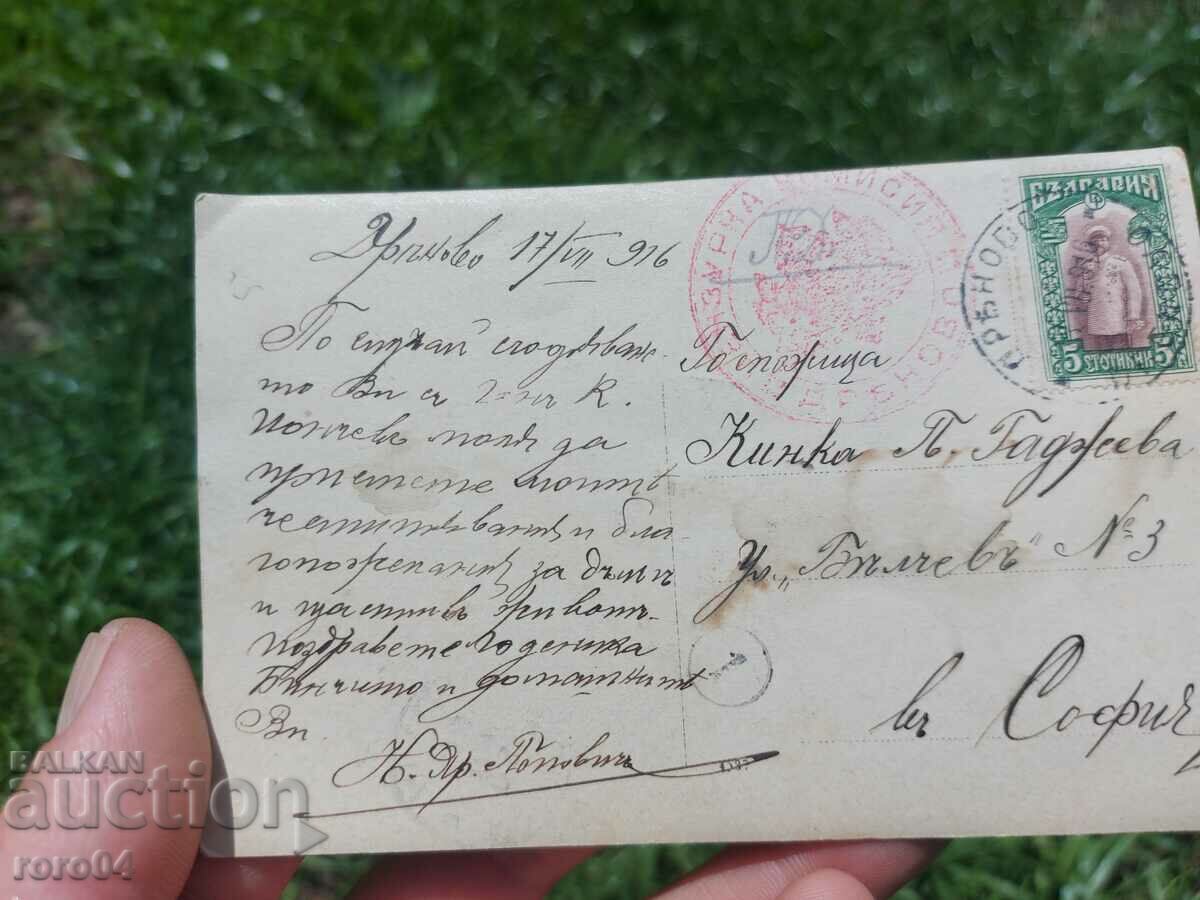 Дрѣново 17/VII 916
По случай сгодяване-
то Ви съ Г-нъ К.
Йончевъ моля да
приемете моитѣ
честитявания и бла-
гопожелания за дълъгъ
и щастливъ животъ.
Поздравете годеника
Бинчито и домашнитѣ
Ви.
Н. Др. Поповичъ
Госпожица
Кинка П. Гаджева
Ул. „Бѣлчевъ" № 3
въ София
БЪЛГАРИЯ
5 СТОТИНКИ 5
ДРѢНОВО
1
BALKAN
auction
roro04